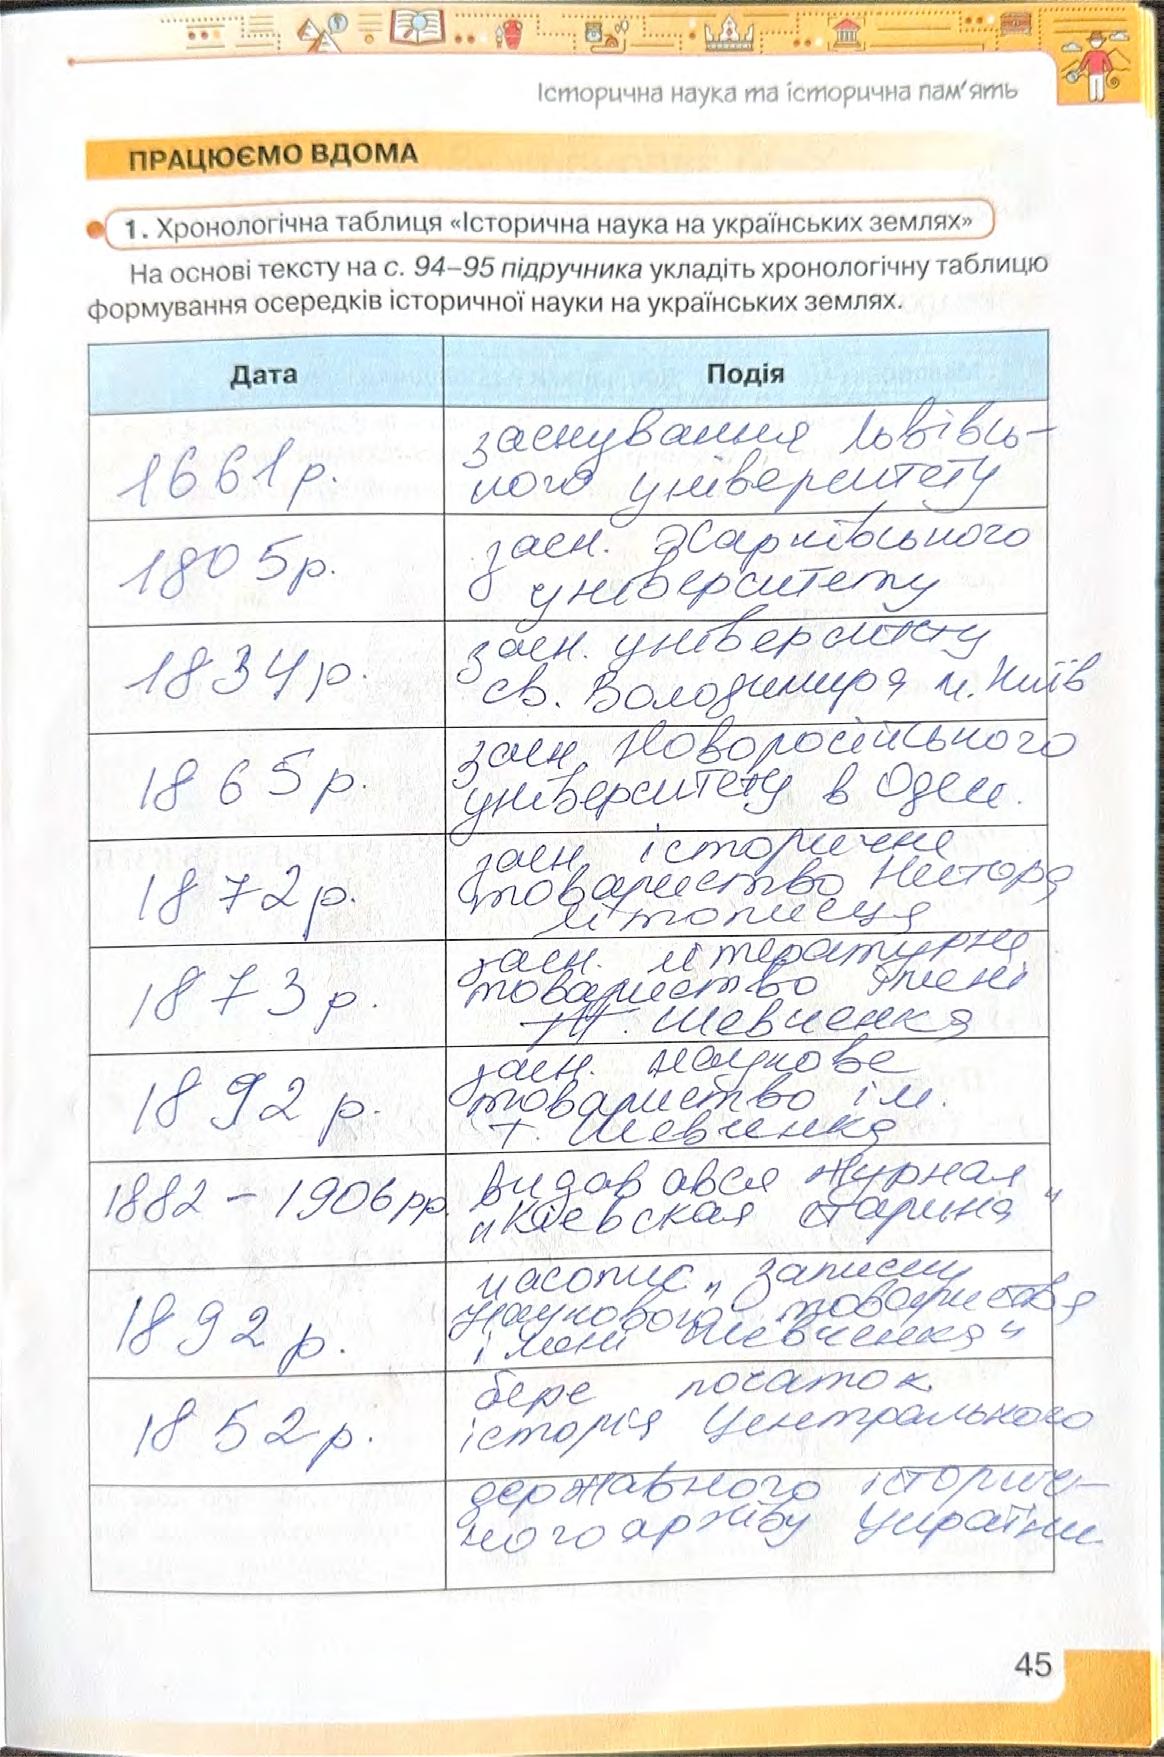 Історична наука та історична пам'ять
ПРАЦЮЄМО ВДОМА
1. Хронологічна таблиця «Історична наука на українських землях»
На основі тексту на с. 94–95 підручника укладіть хронологічну таблицю
формування осередків історичної науки на українських землях.
Дата
Подія
1661 р.
заснування Львівсь-
кого університету
1805 р.
засн. Харківського
університету
1834 р.
засн. університету
св. Володимира м. Київ
1865 р.
засн. Новоросійського
університету в Одеси.
1872 р.
засн. історичне
товариство Нестора
літописця
1873 р.
засн. літературне
товариство імені
Шевченка
1892 р.
засн. наукове
товариство ім.
Т. Шевченка
1882 – 1906 рр.
видавався журнал
„Киевская старина"
1892 р.
часопис „Записки
Наукового товариства
імені Шевченка"
1852 р.
бере початок
історія Центрального
державного історич-
ного архіву України
45